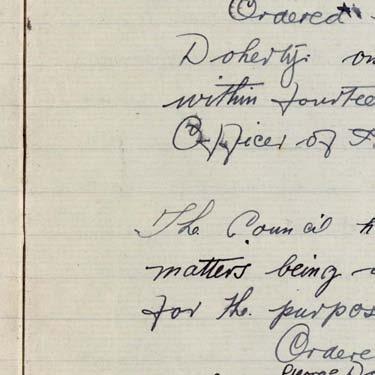 Ordered
Doherty: on
within fourtee
Officer of
The Council h
matters being
for the purpos
Ordere
George Do